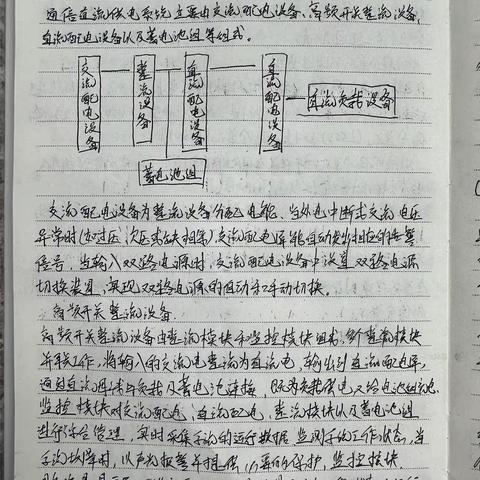 通信直流供电系统主要由交流配电设备、高频开关整流设备、
直流配电设备以及蓄电池组等组成。
交流配电设备
整流设备
直流配电设备
直流配电设备
直流负载设备
蓄电池组
交流配电设备为整流设备分配电能、当外电中断或交流电压
异常时(如过压、欠压或缺相等)交流配电屏能自动发出相应的告警
信号，当输入双路电源时，交流配电设备中设置双路电源
切换装置，实现双路电源的自动和手动切换。
高频开关整流设备.
高频开关整流设备由整流模块和监控模块组成，多个整流模块
并联工作，将输入的交流电整流为直流电，输出到直流配电屏，
通过直流母线与负载及蓄电池连接，既为负载供电又给电池组充电.
监控模块对交流配电、直流配电、整流模块以及蓄电池组
进行综合管理，实时采集系统的运行数据 监测系统工作状态，当
系统故障时，以声光报警并提供必要的保护，监控模块